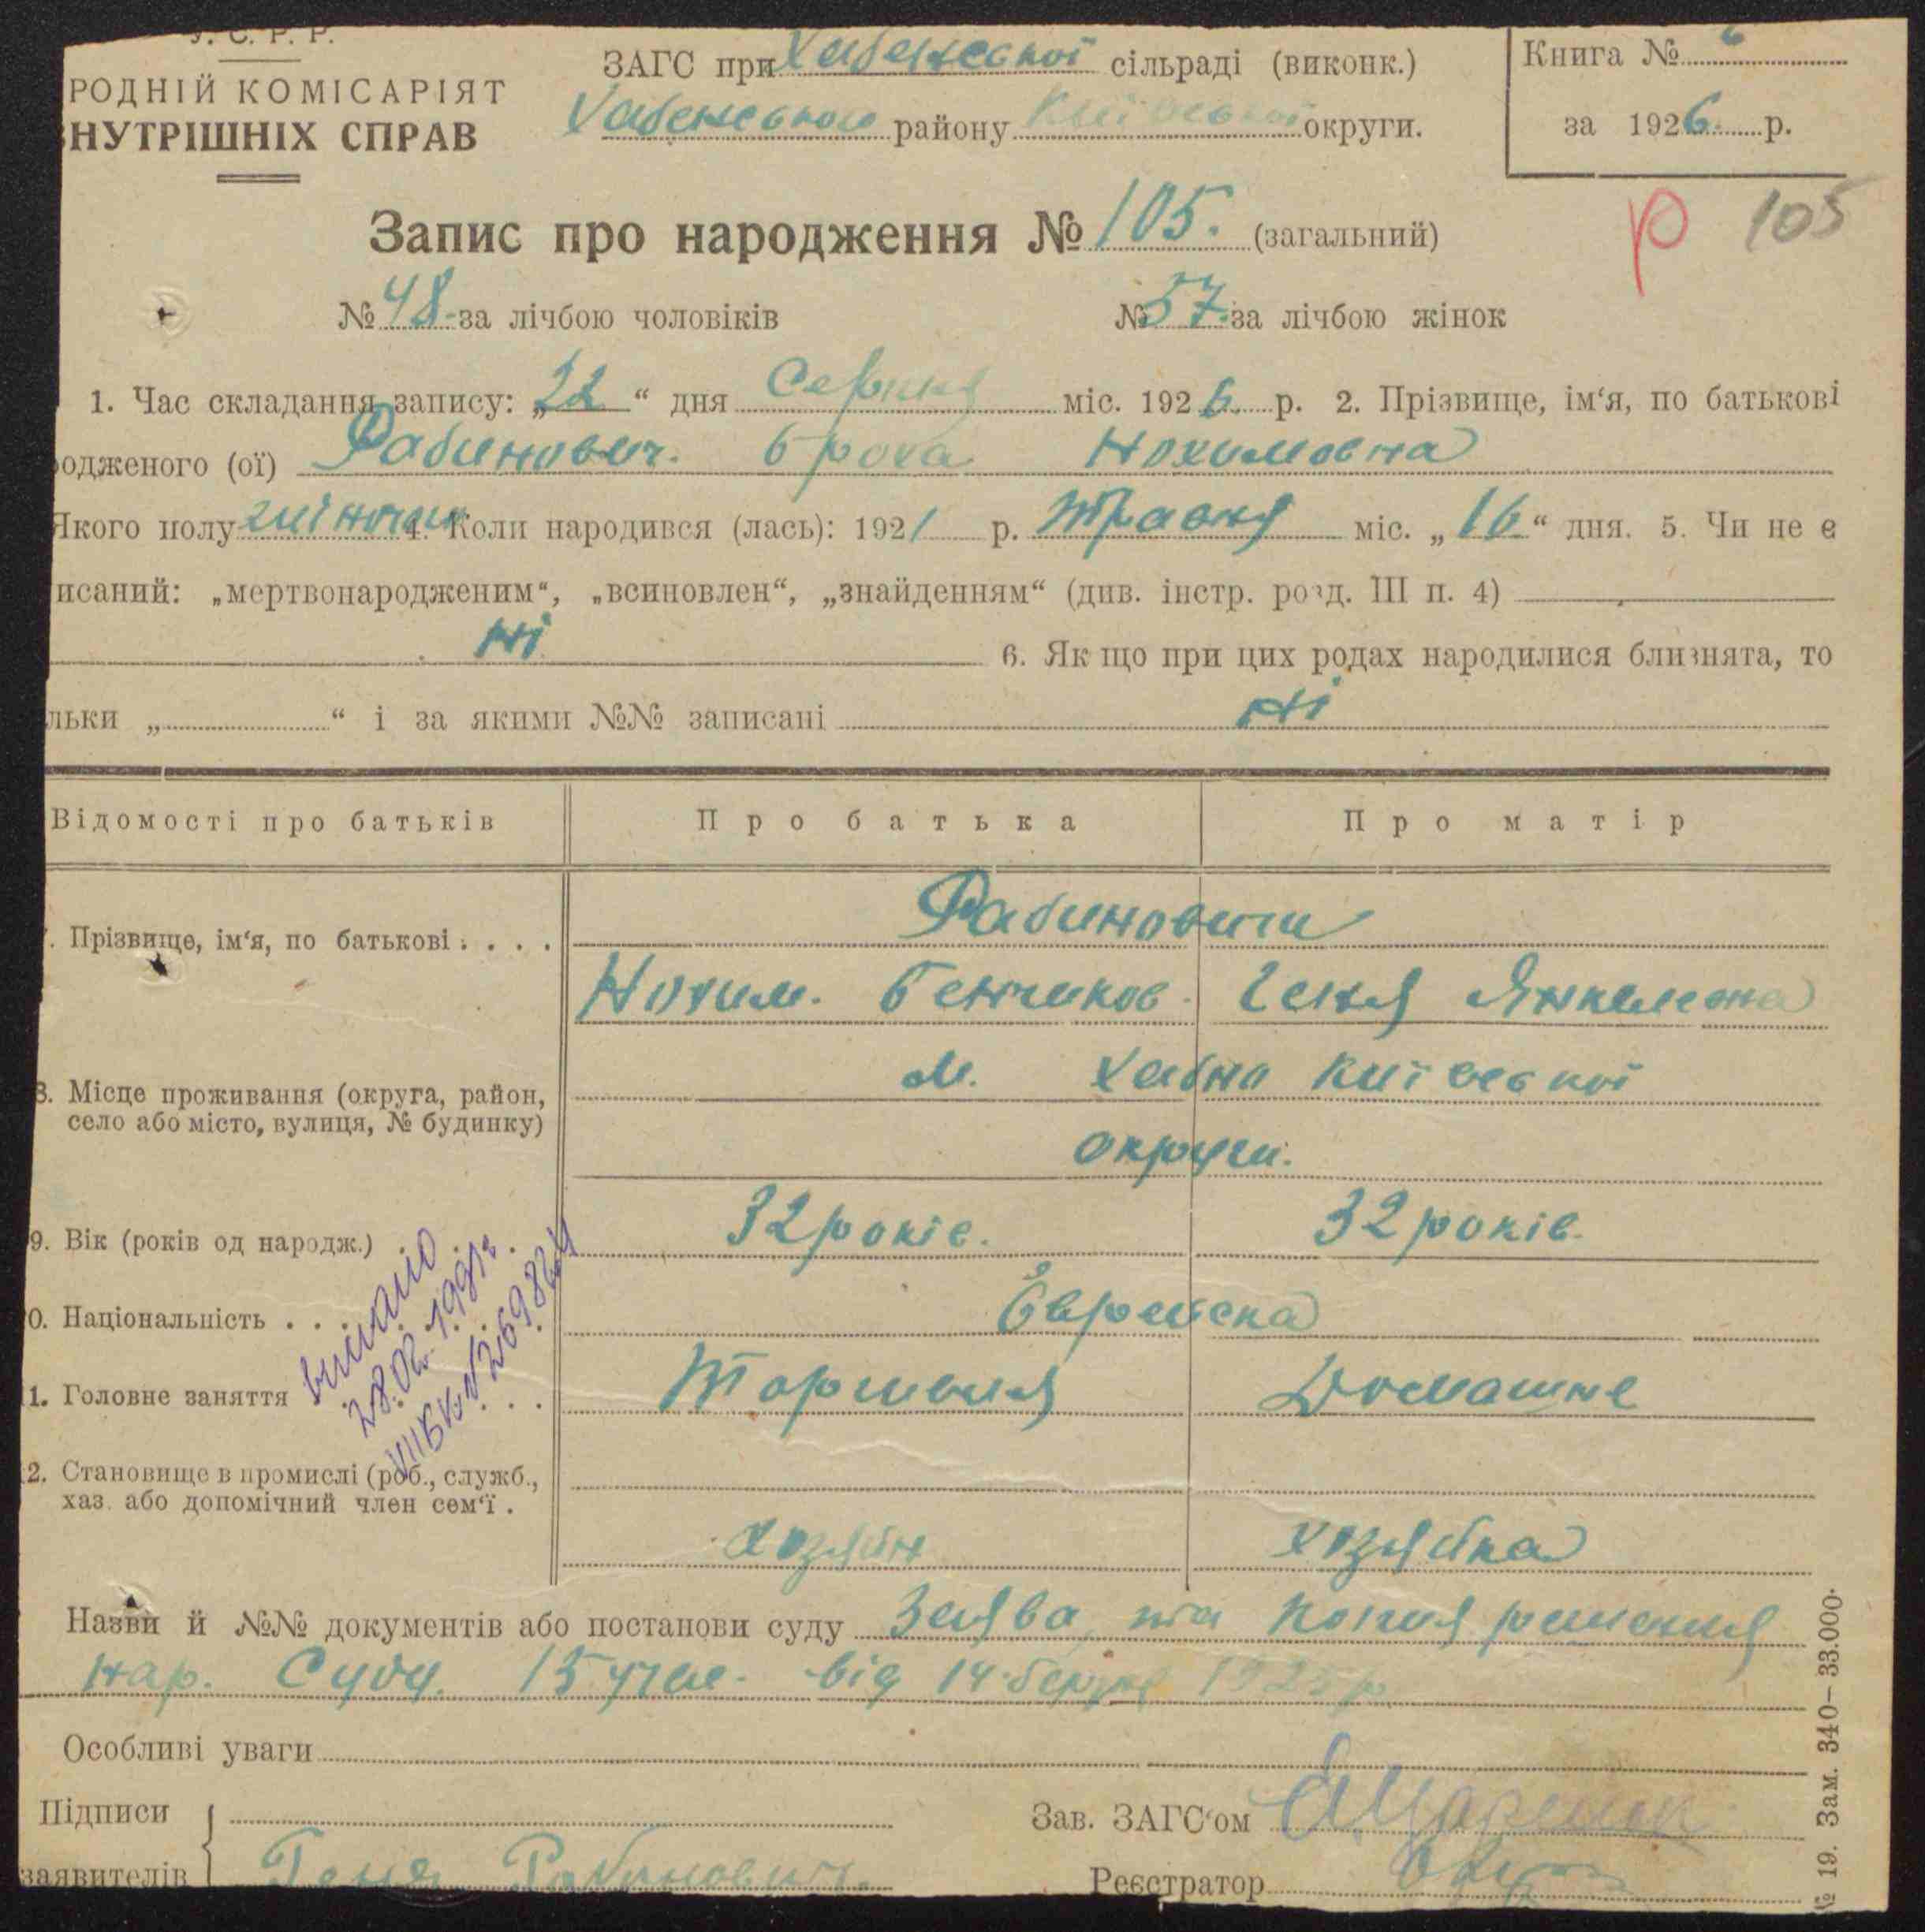 У. С. Р. Р.
РОДНІЙ КОМІСАРІЯТ
ВНУТРІШНІХ СПРАВ
ЗАГС при Хабенської сільраді (виконк.)
Хабенського району Київської округи.
Книга № 6
за 1926 р.
Запис про народження № 105. (загальний)
р 105
№ 48 за лічбою чоловіків № 57. за лічбою жінок
1. Час складання запису: „22“ дня Серпня міс. 1926. р. 2. Прізвище, ім‘я, по батькові
родженого (ої) Рабинович. Броха Нохимовна
Якого полу жіночи 4. Коли народився (лась): 1921 р. Травня міс. „16“ дня. 5. Чи не є
исаний: „мертвонародженим“, „всиновлен“, „знайденням“ (див. інстр. розд. III п. 4)
ні 6. Як що при цих родах народилися близнята, то
льки „ “ і за якими №№ записані ні
Відомості про батьків Про батька Про матір
. Прізвище, ім‘я, по батькові . . . .
Рабиновичи
Нохим. Бенчиков. Геня Янкилевна
8. Місце проживання (округа, район,
село або місто, вулиця, № будинку)
м. Хабно Київської
округи.
9. Вік (років од народж.) 32 років. 32 років.
0. Національність . . . Єврейска
1. Головне заняття . . . Торговля Домашне
2. Становище в промислі (роб., служб.,
хаз. або допомічний член сем‘ї .
хозяін хозяйка
видано
28.02.1991г.
VIIБК № 269864
Назви й №№ документів або постанови суду Заява, та копия решения
нар. Суду. 15 учас. від 14 березня 1925 р.
Особливі уваги
Підписи
заявителів Геня Рабинович.
Зав. ЗАГС‘ом
Реєстратор
№ 19. Зам. 340—33.000.